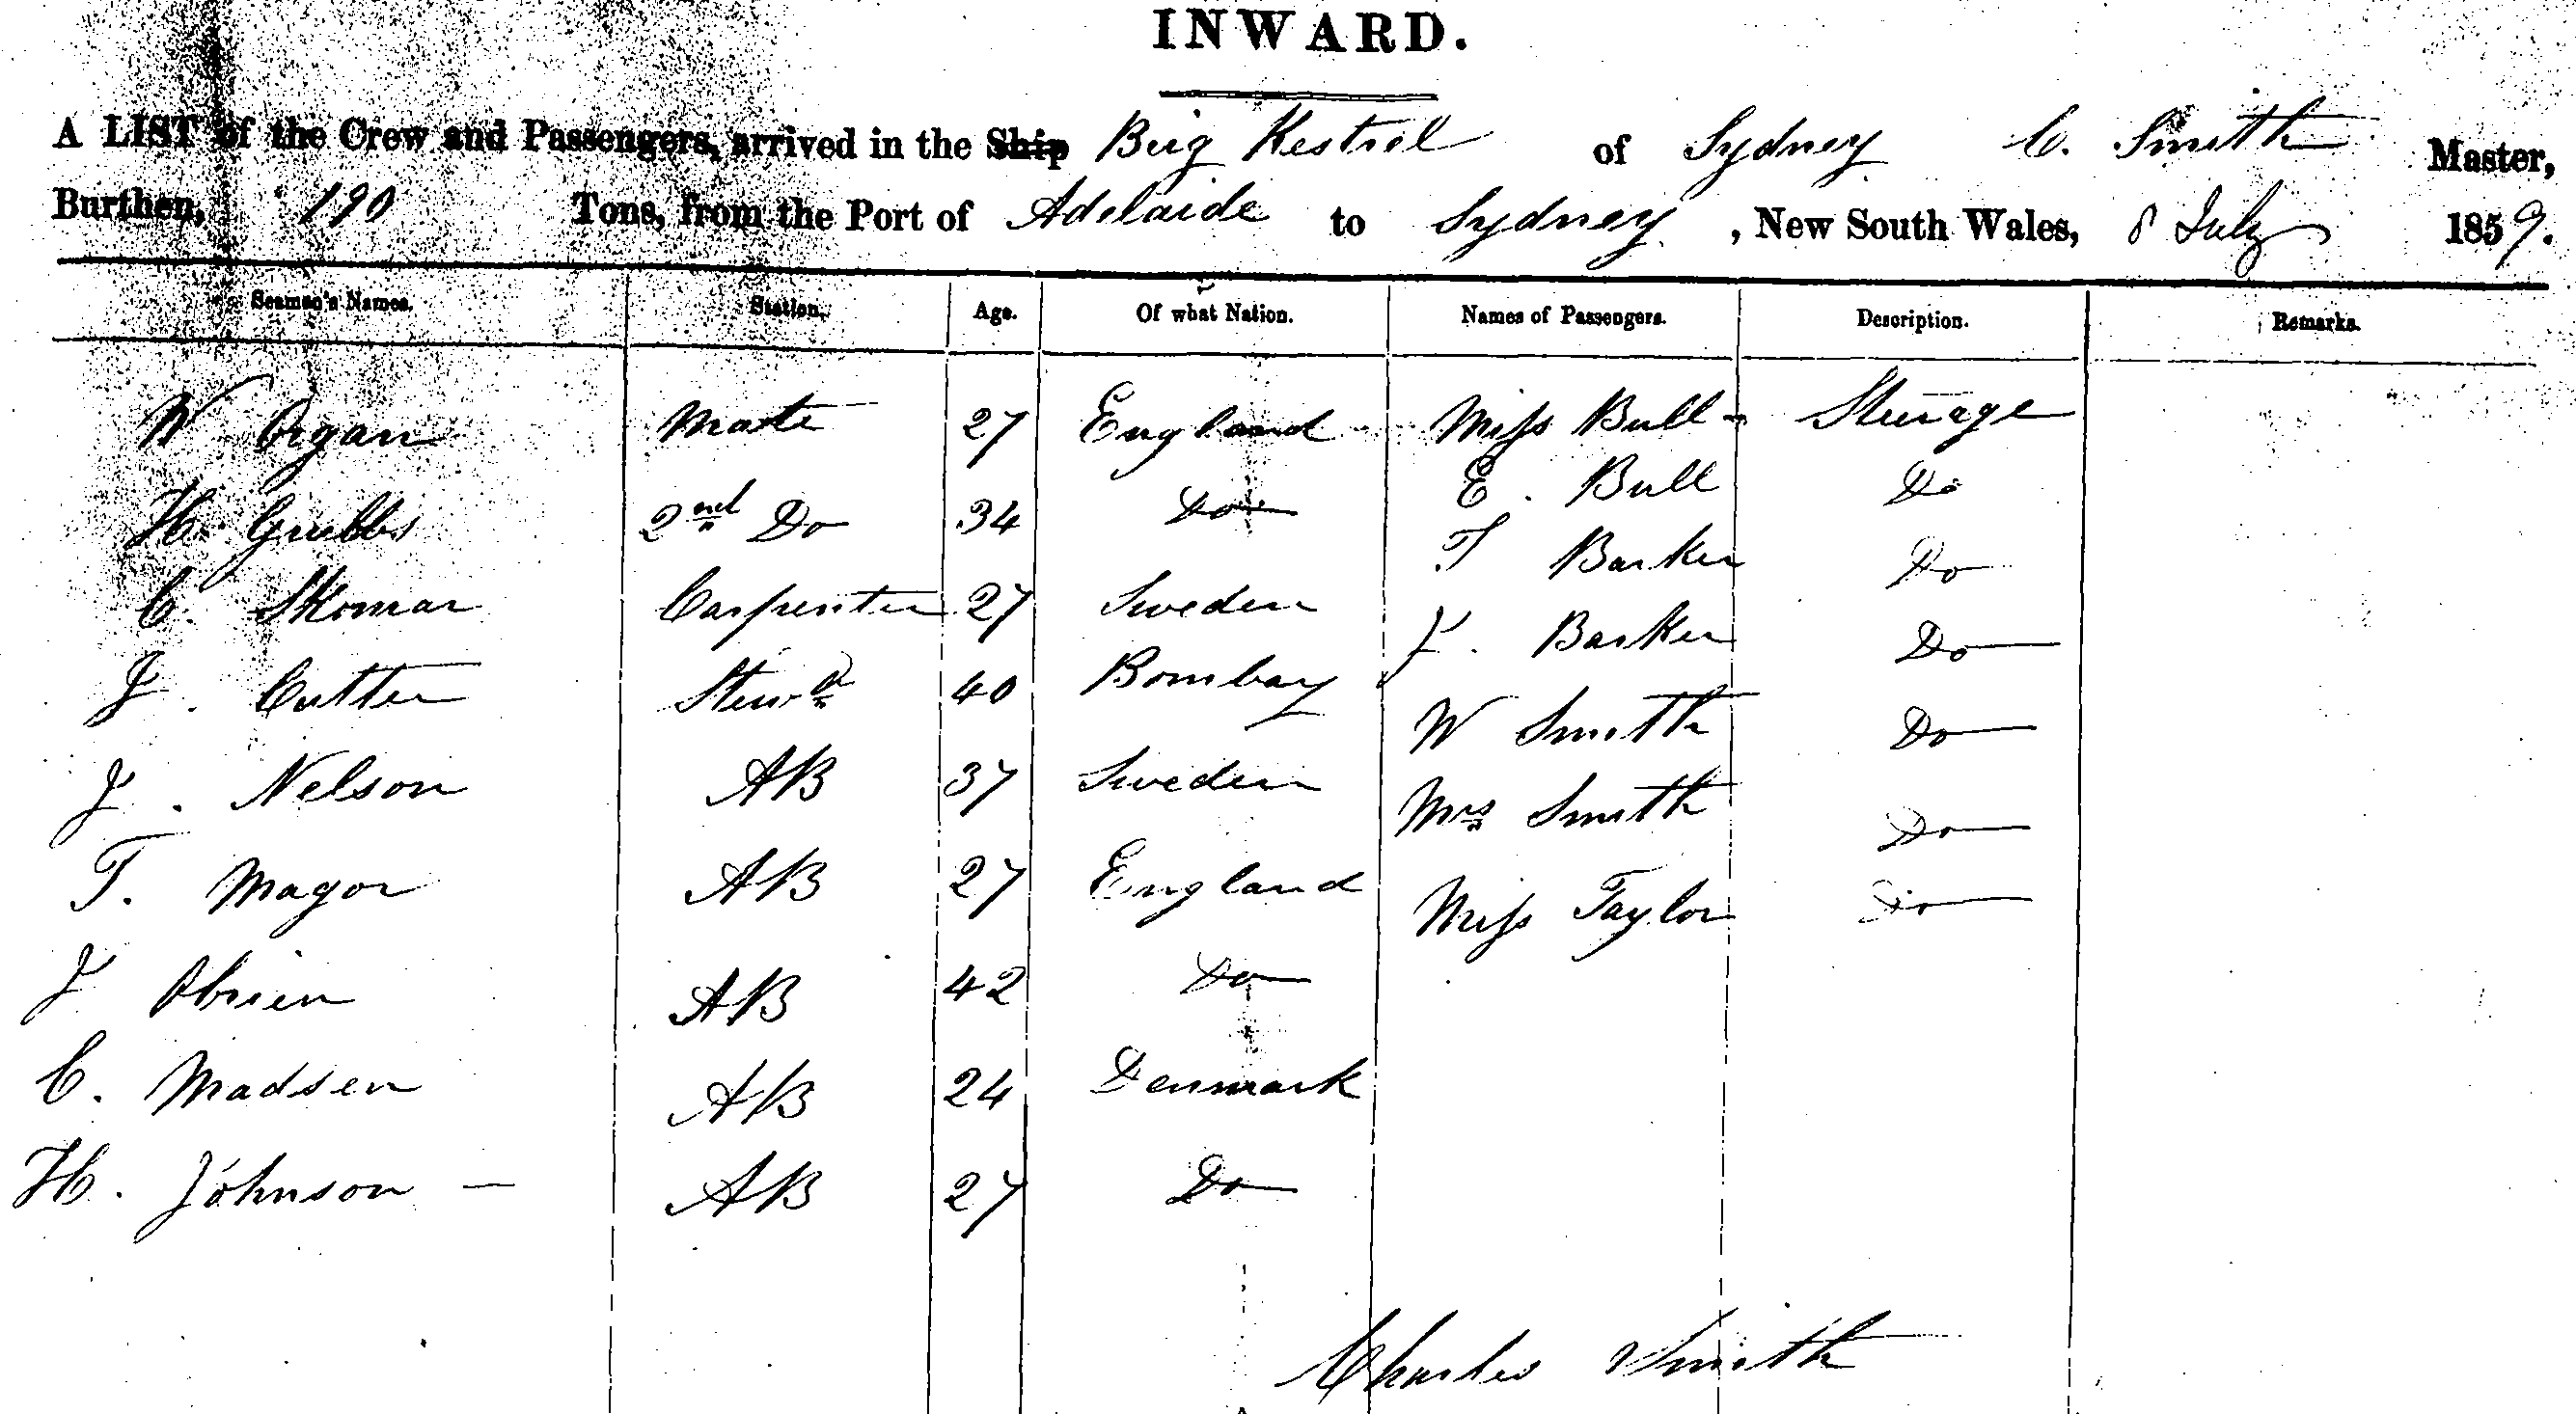 INWARD.
A LIST of the Crew and Passengers, arrived in the Ship Brig Kestrel of Sydney C. Smith Master,
Burthen, 190 Tons, from the Port of Adelaide to Sydney, New South Wales, 8 July 1859.
Seamen's Names. Station. Age. Of what Nation. Names of Passengers. Description. Remarks.
W Organ Mate 27 England Miss Bull - Steerage
E. Bull Do
H. Grubbs 2nd Do 34 Do
T Barker Do
C. Skomar Carpenter 27 Sweden
J. Barker Do
J. Cutter Stewd 40 Bombay
W Smith Do
J. Nelson AB 37 Sweden
Mrs Smith Do
T. Magor AB 27 England
Miss Taylor Do
J Obrien AB 42 Do
C. Madsen AB 24 Denmark
H. Johnson — AB 27 Do
Charles Smith